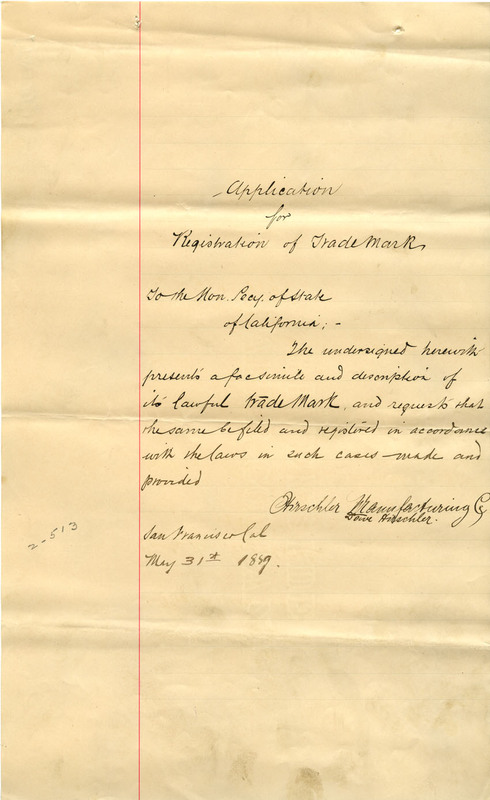 Application
for
Registration of Trade Mark
To the Hon. Secy. of State
of California; -
The undersigned herewith
presents a facsimile and description of
its lawful trade Mark, and requests that
the same be filed and registered in accordance
with the laws in such cases made and
provided
Hirschler Manufacturing Co
Hirschler.
San Francisco Cal
May 31st 1889.
2-513